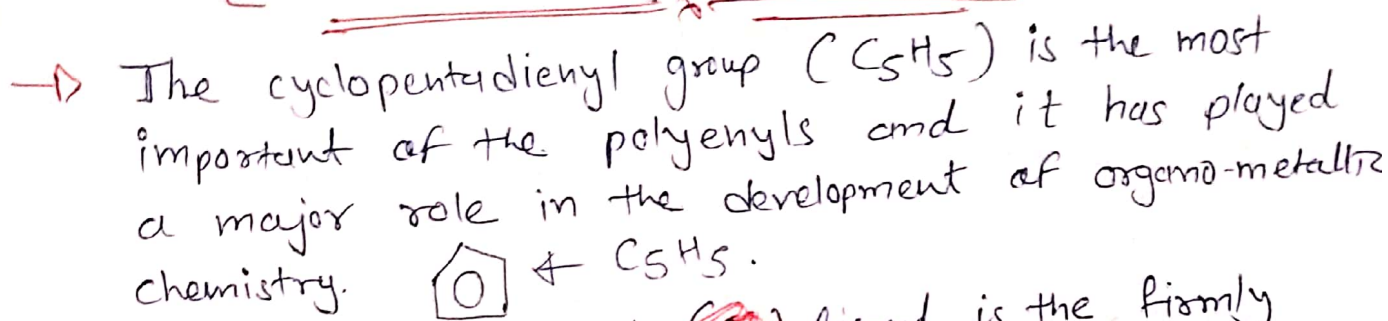 The cyclopentadienyl group (C5H5) is the most
important of the polyenyls and it has played
a major role in the development of organo-metallic
chemistry. ← C5H5.
is the firmly